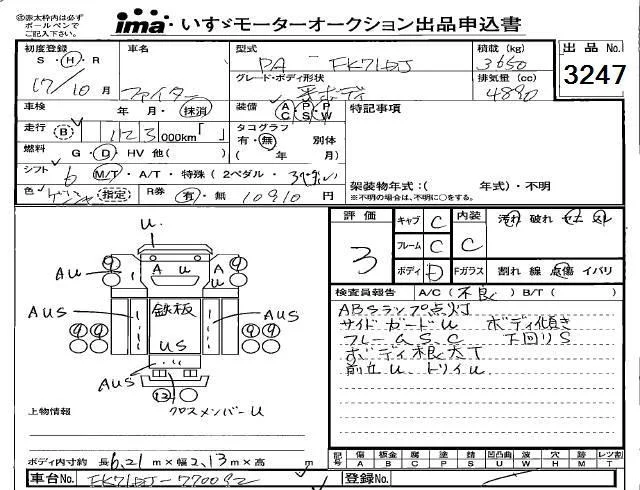 ㊟赤太枠内は必ず
ボールペンで
ご記入下さい。
ima いすゞモーターオークション出品申込書
初度登録
S・H・R
17/10月
車名
ファイター
型式
PA - FK71DJ
グレード・ボディ形状
平ボディ
積載 (kg)
3650
排気量 (cc)
4890
出品 No.
3247
車検
年 月 抹消
装備
A C P S P W
特記事項
走行
B 123 000km「 」
タコグラフ
有・無 別体
( 年 月)
燃料
G・D・HV 他( )
シフト
6 M/T・A/T・特殊(2ペダル・3ペダル)
色
指定
R券
有・無 10910円
架装物年式:( 年式)・不明
※不明の場合は、不明に○をする。
評価
3
キャブ C
フレーム C
ボディ D
内装 C
Fガラス
汚れ 破れ
割れ 線 点傷 イバリ
検査員報告 A/C(不良) B/T( )
ABSランプ点灯
サイドガードU ボディ傾き
フレームS、C 下回りS
ボディ根太T
前立U、トリイU
U
AU
A U
A U
AUS
AUS
鉄板
US
AUS
9
9
9 9
9 9
12
クロスメンバーU
上物情報
ボディ内寸約 長6.21m×幅2.13m×高 m
記号
傷 A
板金 B
腐 C
塗 P
錆 S
凹凸曲 U
波 W
穴 H
跡 M
レツ割 T
車台No. FK71DJ-770092
登録No.